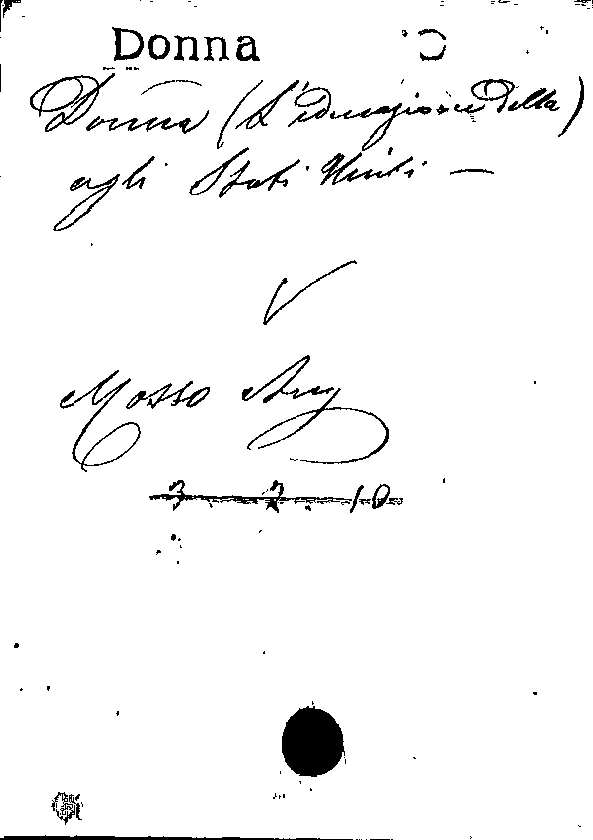 Donna
Donna (L'educazione della)
agli Stati Uniti —
Mosso Ang
3. 2. 10